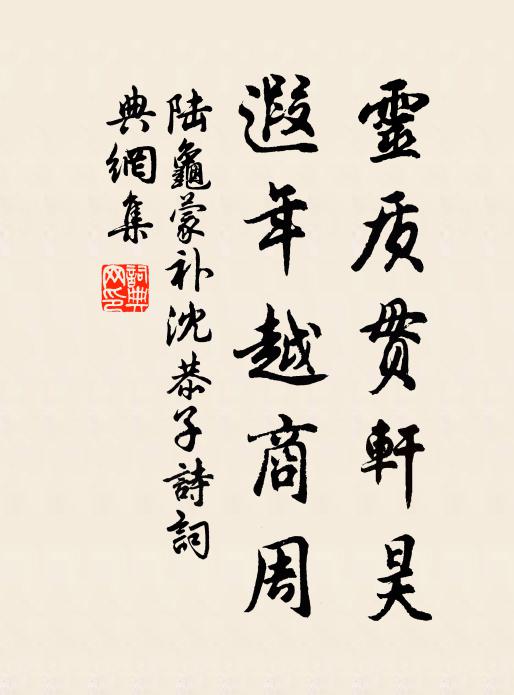 靈质贯軒昊
遐年越商周
陆龜蒙补沈恭子詩詞
典網集
詞典
网印